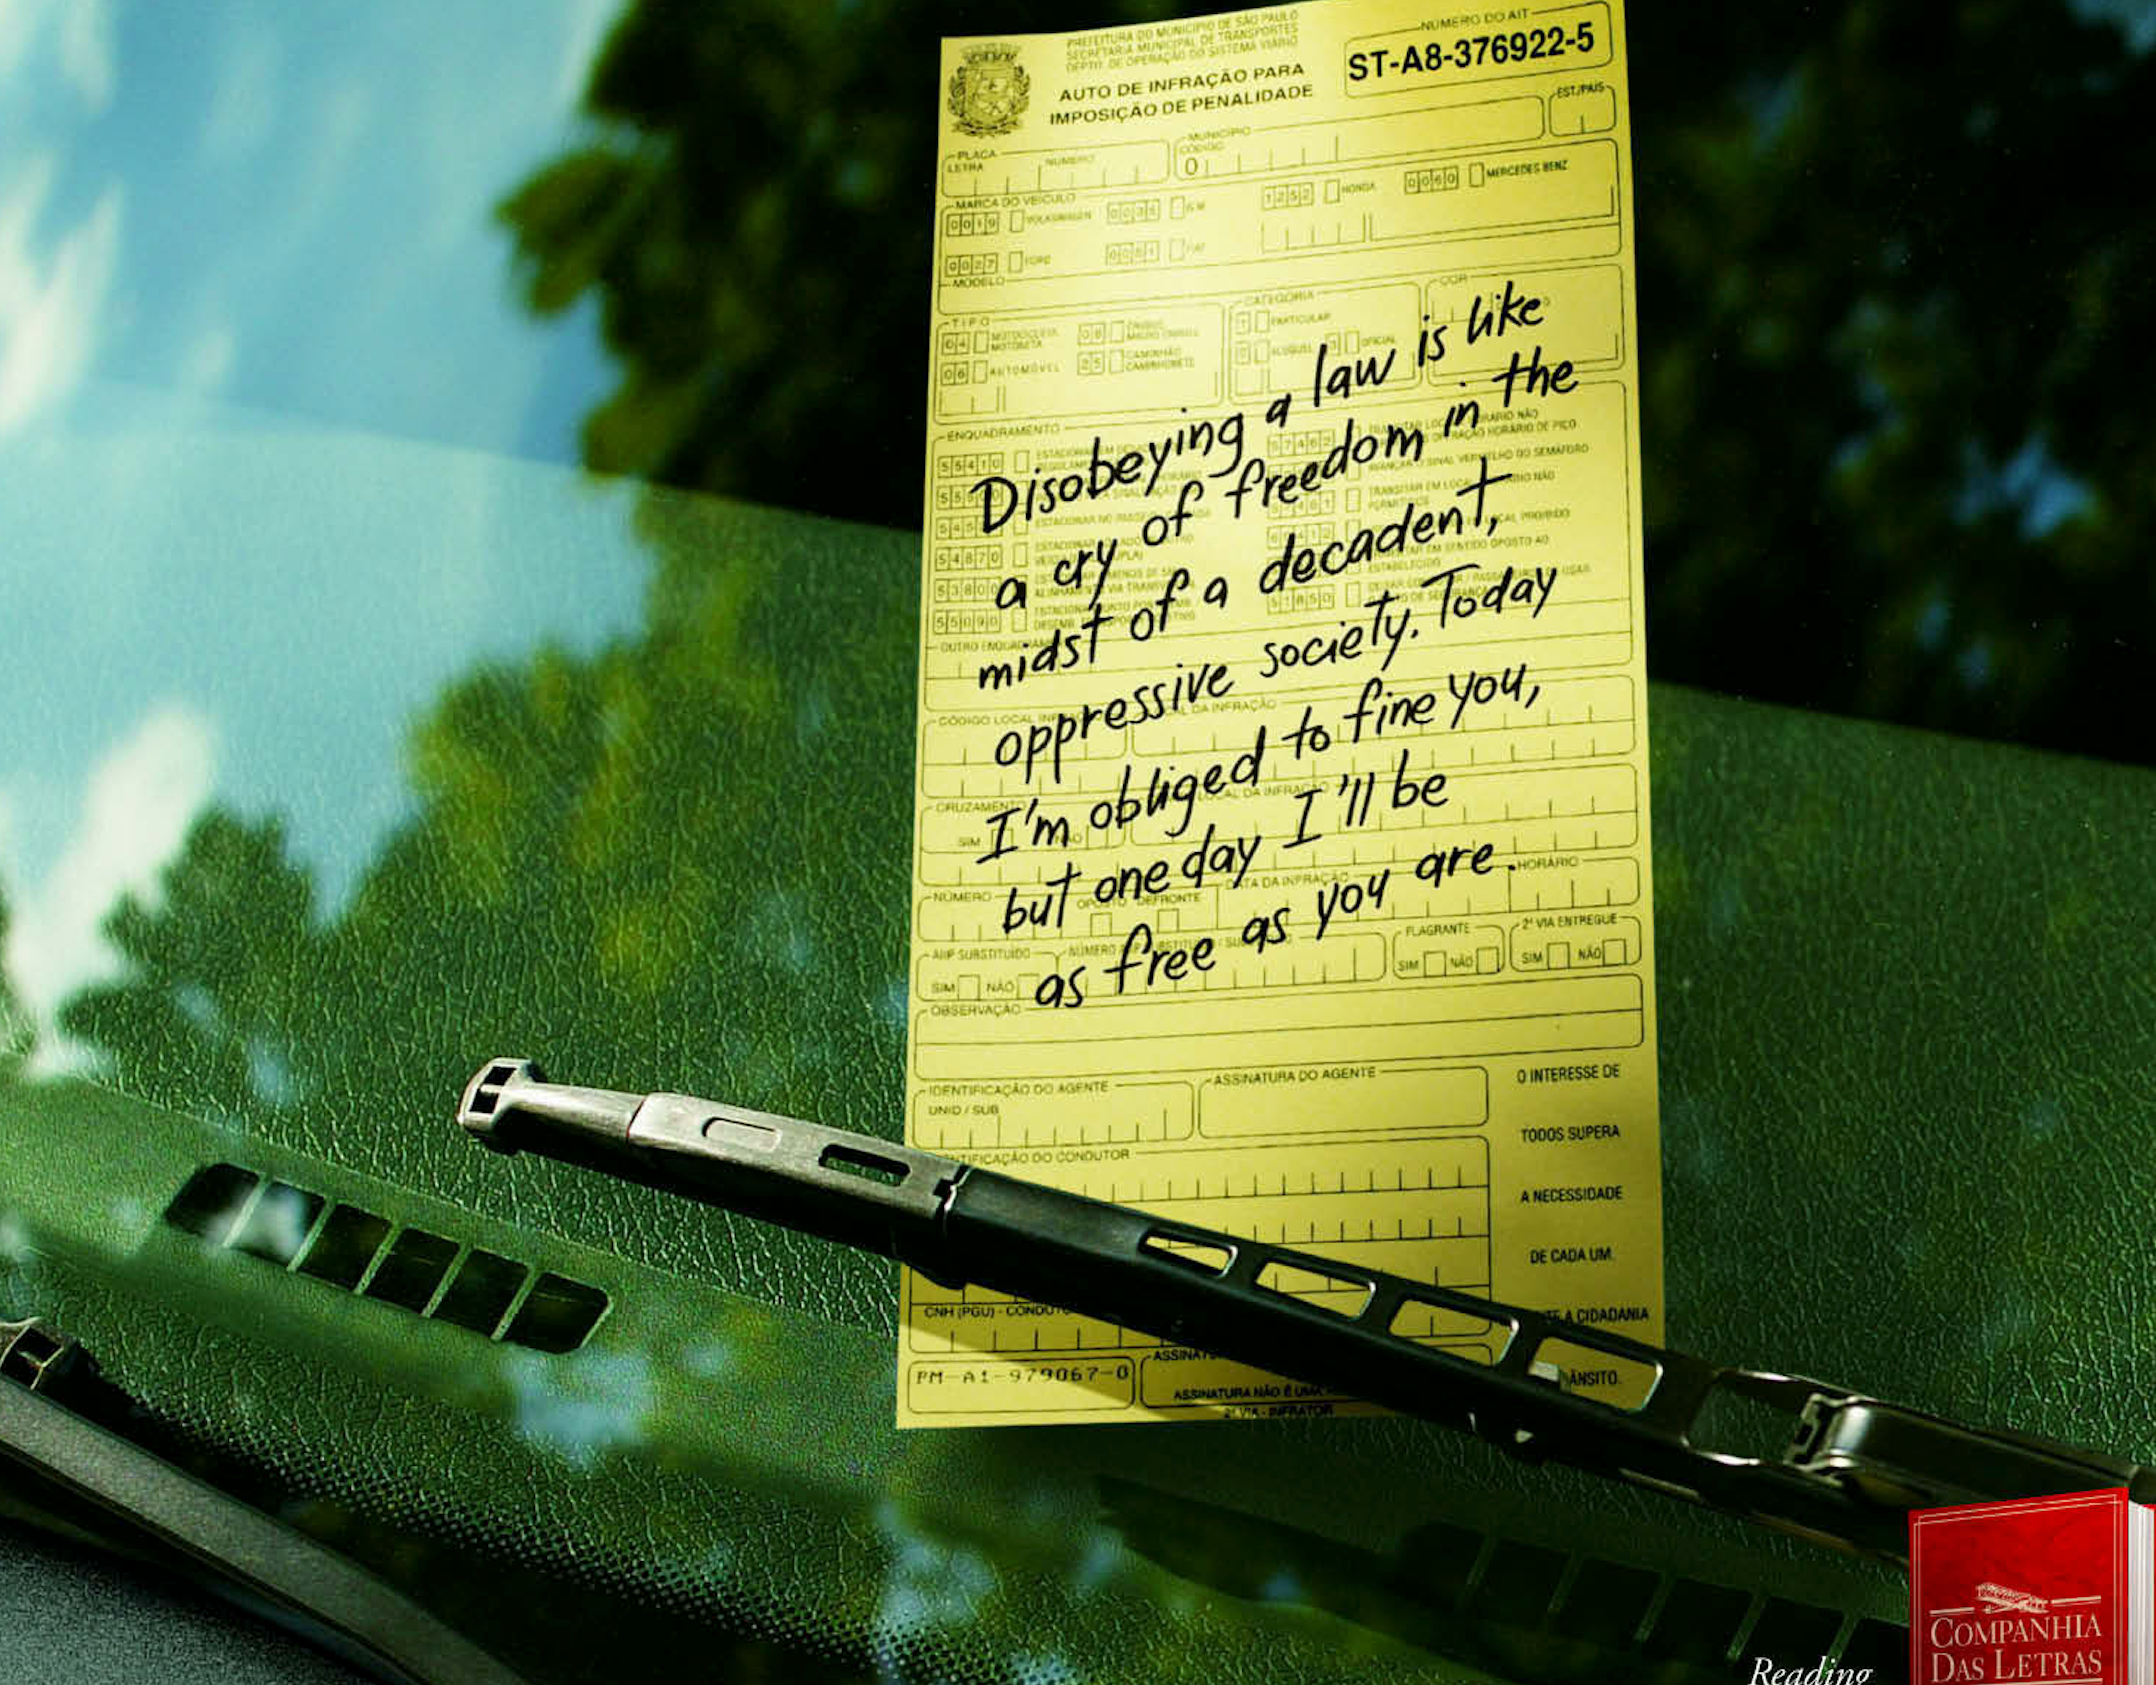 PREFEITURA DO MUNICIPIO DE SÃO PAULO
SECRETARIA MUNICIPAL DE TRANSPORTES
DEPTO. DE OPERAÇÃO DO SISTEMA VIÁRIO
AUTO DE INFRAÇÃO PARA
IMPOSIÇÃO DE PENALIDADE
NÚMERO DO AIT
ST-A8-376922-5
EST./PAÍS
PLACA
LETRA NÚMERO
MUNICÍPIO
CÓDIGO
0
MARCA DO VEÍCULO
0019 VOLKSWAGEN
1252 HONDA
0060 MERCEDES BENZ
0027 FORD
MODELO
TIPO
04 MOTOCICLETA
MOTONETA
06 AUTOMÓVEL
25 CAMINHÃO
CAMINHONETE
CATEGORIA
PARTICULAR
OFICIAL
COR
ENQUADRAMENTO
55410
54870
55090
Disobeying a law is like
a cry of freedom in the
midst of a decadent,
oppressive society. Today
I'm obliged to fine you,
but one day I'll be
as free as you are.
CÓDIGO LOCAL
DA INFRAÇÃO
CRUZAMENTO
SIM
LOCAL DA
NÚMERO
DEFRONTE
DATA DA INFRAÇÃO
HORÁRIO
AIIP SUBSTITUÍDO
SIM NÃO
NÚMERO
FLAGRANTE
SIM NÃO
2ª VIA ENTREGUE
SIM NÃO
OBSERVAÇÃO
IDENTIFICAÇÃO DO AGENTE
UNID / SUB
ASSINATURA DO AGENTE
O INTERESSE DE
TODOS SUPERA
A NECESSIDADE
DE CADA UM.
A CIDADANIA
DO CONDUTOR
CNH (PGU) -
PM-A1-979067-0
ASSINATURA NÃO É
2ª VIA - INFRATOR
COMPANHIA
DAS LETRAS
Reading